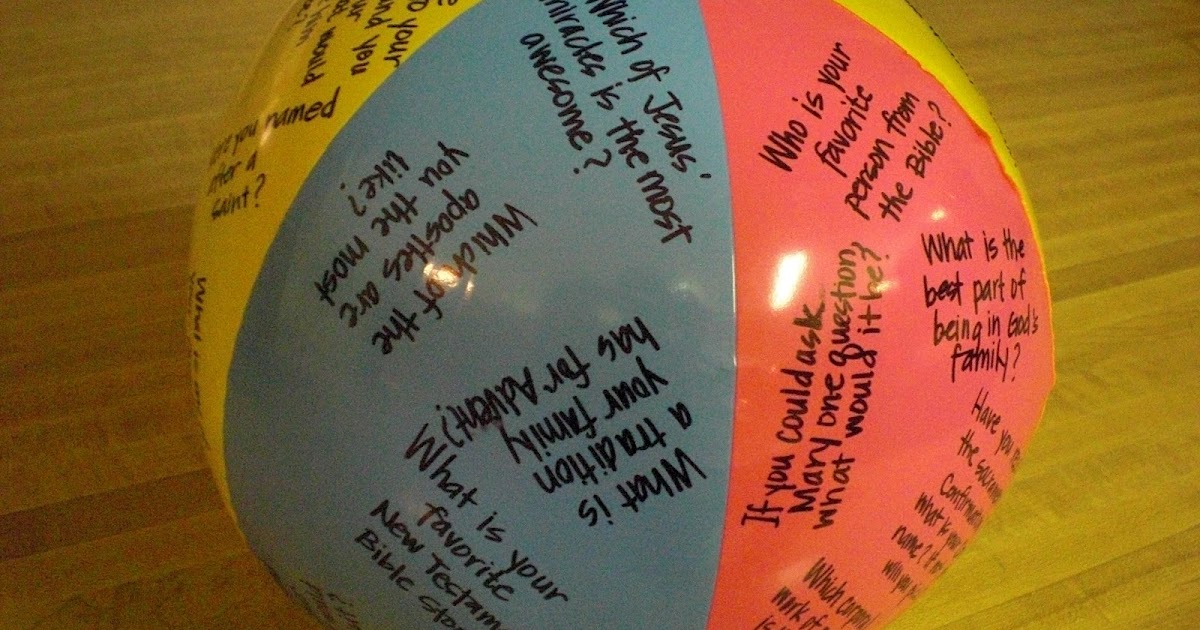 your
and you
would
you named
after a
saint?
Which of Jesus'
miracles is the most
awesome?
Which of the
apostles are
you the most
like?
What is
a tradition
your family
has for Advent?
What is your
favorite
New
Bible
Who is your
favorite
person from
the Bible?
What is the
best part of
being in God's
family?
If you could ask
Mary one question,
what would it be?
Have you
the
what is
name? 
will you
Which
work of